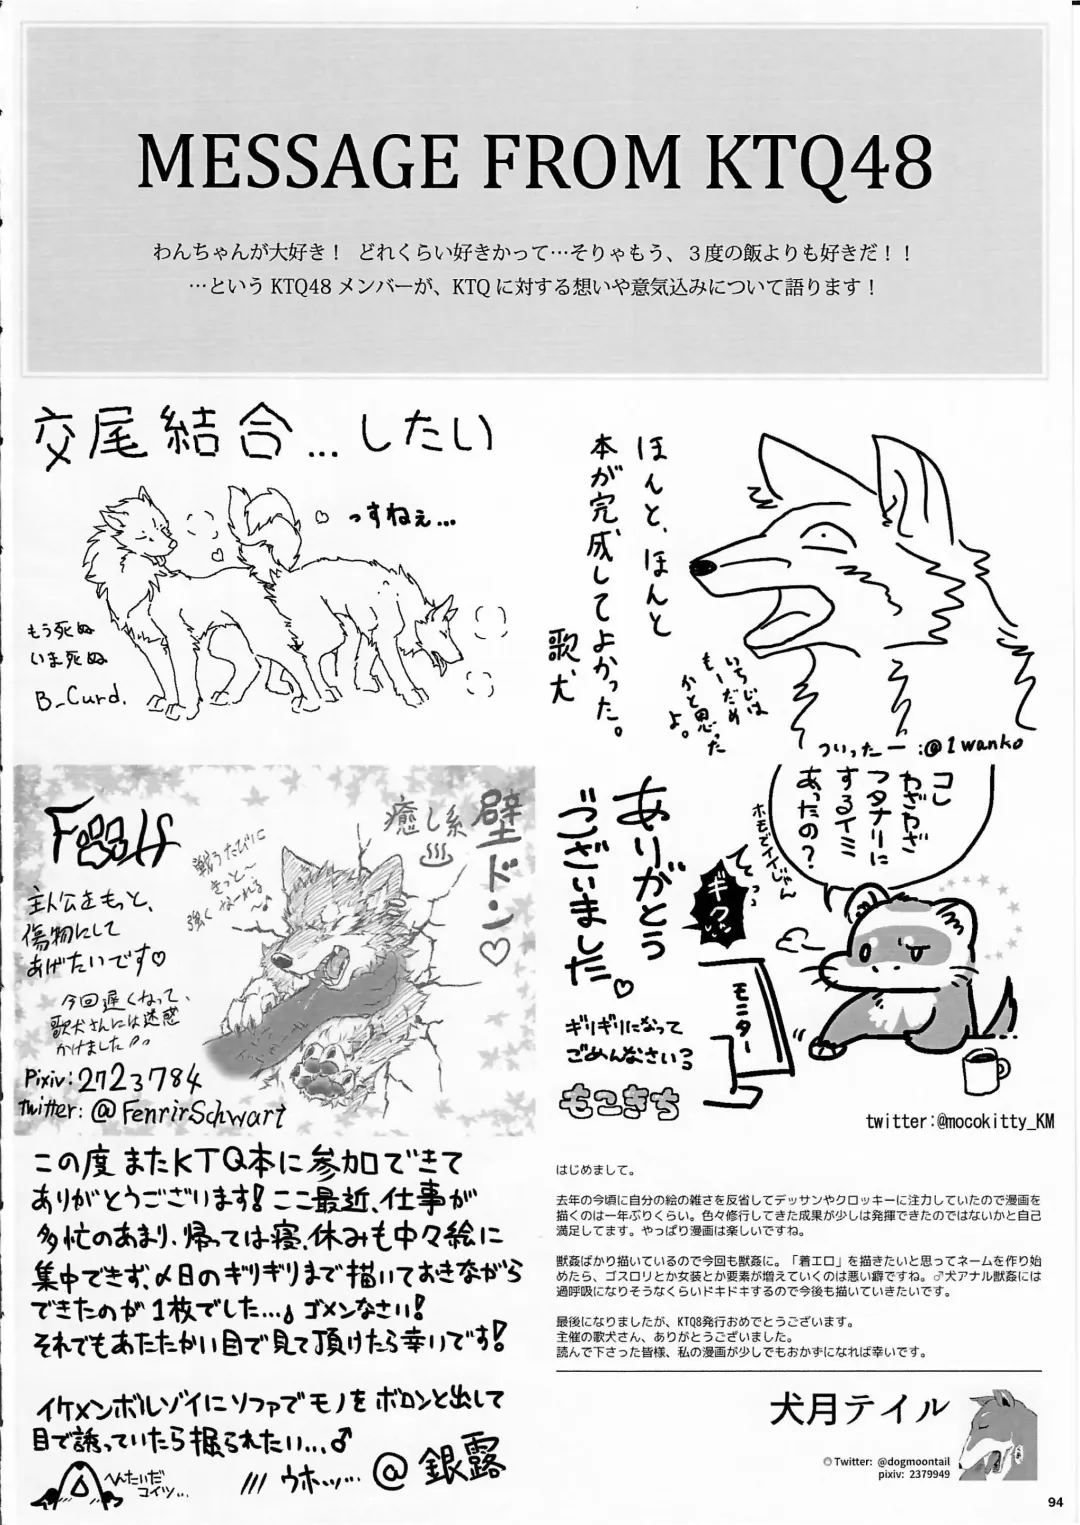 MESSAGE FROM KTQ48
わんちゃんが大好き！ どれくらい好きかって…そりゃもう、３度の飯よりも好きだ！！
…という KTQ48 メンバーが、KTQ に対する想いや意気込みについて語ります！
交尾結合…したい
っすねぇ…
もう死ぬ
いま死ぬ
B_Curd.
ほんと、ほんと
本が完成してよかった。
歌犬
いちじは
もーだめ
かと思った
よ。
ついったー :@1wanko
壁ドン♡
癒し系♨
戦うたびに
きっと〜
強くなーれる〜♪
主人公をもっと、
傷物にして
あげたいです♡
今回遅くなって、
歌犬さんには迷惑
かけました
Pixiv:2723784
twitter:@FenrirSchwart
コレ
わざわざ
フタナリに
するイミ
あったの？
ホモでイイじゃん
ギクッ
てってっ
モニター
ありがとう
ございました♡
ギリギリになって
ごめんなさい？
もこきち
twitter:@mocokitty_KM
この度またKTQ本に参加できて
ありがとうございます！ここ最近、仕事が
多忙のあまり、帰っては寝、休みも中々絵に
集中できず、〆日のギリギリまで描いておきながら
できたのが1枚でした…。ゴメンなさい！
それでもあたたかい目で見て頂けたら幸いです！
イケメンボルゾイにソファでモノをボロンと出して
目で誘っていたら掘られたい…♂
へんたいだ
コイツ…
/// ウホッ… @銀露
はじめまして。
去年の今頃に自分の絵の雑さを反省してデッサンやクロッキーに注力していたので漫画を
描くのは一年ぶりくらい。色々修行してきた成果が少しは発揮できたのではないかと自己
満足してます。やっぱり漫画は楽しいですね。
獣姦ばかり描いているので今回も獣姦に。「着エロ」を描きたいと思ってネームを作り始
めたら、ゴスロリとか女装とか要素が増えていくのは悪い癖ですね。♂犬アナル獣姦には
過呼吸になりそうなくらいドキドキするので今後も描いていきたいです。
最後になりましたが、KTQ8発行おめでとうございます。
主催の歌犬さん、ありがとうございました。
読んで下さった皆様、私の漫画が少しでもおかずになれば幸いです。
犬月テイル
◎Twitter: @dogmoontail
pixiv: 2379949
94